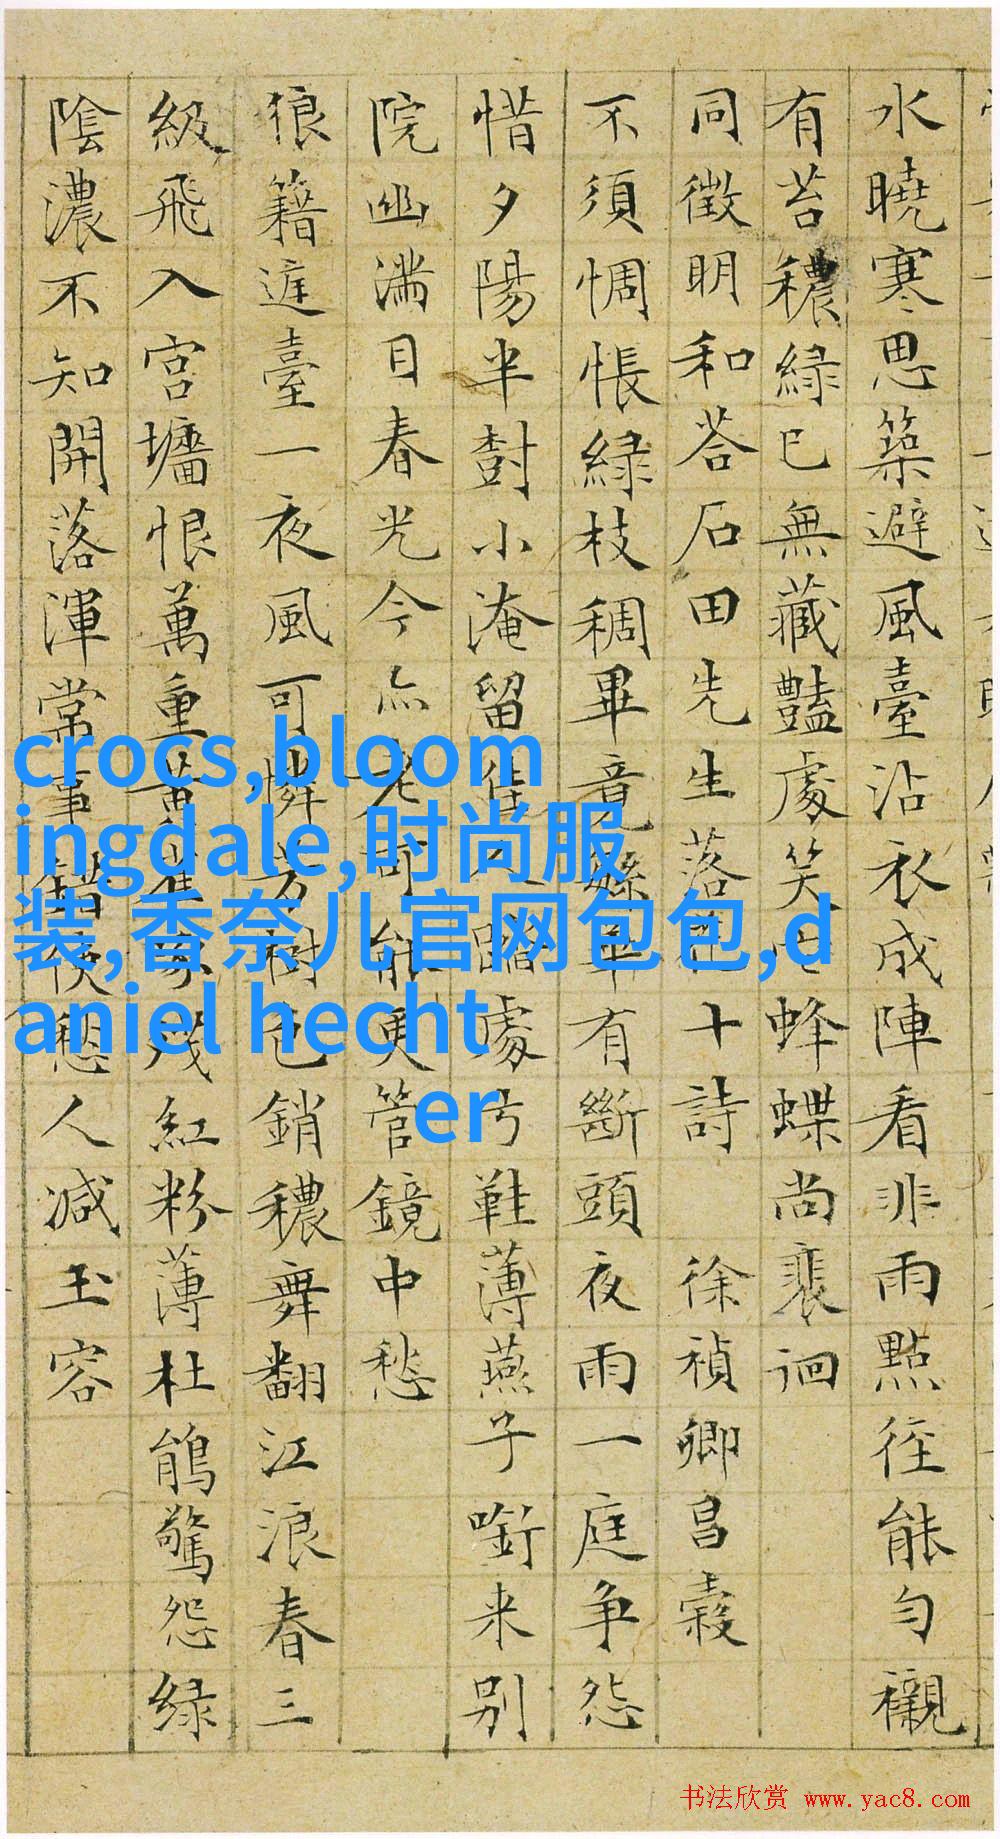 水曉寒思築避風臺沾衣成陣看非雨點徑能勻襯
有苔穠緑已無藏豔處笑蜂蝶尚裴徊
同徵明和荅石田先生落十詩 徐禎卿昌榖
不須惆悵緑枝稠畢竟有斷頭夜雨一庭争怨
惜夕陽半樹小淹留佳人蹋處弓鞋薄燕子啣来别
院幽滿目春光今亦老可能更管鏡中愁
狼籍遙臺一夜風可憐芳樹色銷穠舞翻江浪春三
級飛入宫墻恨萬重黄残紅粉薄杜鵑驚怨緑
陰濃不知開落渾常事錯愁人减玉容
crocs,bloom
ingdale,时尚服
装,香奈儿官网包包,d
aniel hecht
er
书法欣赏 www.yac8.com